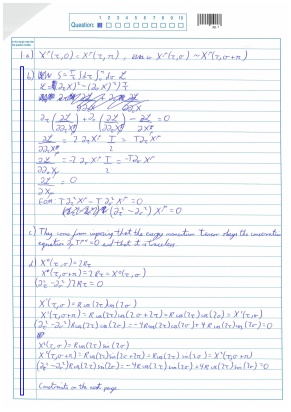 1 2 3 4 5 6 7 8 9 10
Question:
1 a) X^μ(τ,0) = X^μ(τ,π), X^μ(τ,σ) ~ X^μ(τ,σ+π)
b) S = T/2 ∫dτ ∫₀^π dσ L
L = (∂τX)² - (∂σX)²
∂τ(∂L/∂∂τX^μ) + ∂σ(∂L/∂∂σX^μ) - ∂L/∂X^μ = 0
∂L/∂∂τX^μ = 2∂τX^μ T/2 = T∂τX^μ
∂L/∂∂σX^μ = -2∂σX^μ T/2 = -T∂σX^μ
∂L/∂X^μ = 0
EoM: T∂τ²X^μ - T∂σ²X^μ = 0
(∂τ² - ∂σ²) X^μ = 0
c) They come from imposing that the energy momentum Tensor obeys the conservation
equation ∂ T = 0 and that it is traceless.
d) X⁰(τ,σ) = 2Rτ
X⁰(τ,σ+π) = 2Rτ = X⁰(τ,σ)
(∂τ² - ∂σ²) 2Rτ = 0
X¹(τ,σ) = R cos(2τ) cos(2σ)
X¹(τ,σ+π) = R cos(2τ) cos(2σ+2π) = R cos(2τ) cos(2σ) = X¹(τ,σ)
(∂τ² - ∂σ²) R cos(2τ) cos(2σ) = -4R cos(2τ) cos(2σ) + 4R cos(2τ) cos(2σ) = 0
X²(τ,σ) = R cos(2τ) sin(2σ)
X²(τ,σ+π) = R cos(2τ) sin(2σ+2π) = R cos(2τ) sin(2σ) = X²(τ,σ)
(∂τ² - ∂σ²) R cos(2τ) sin(2σ) = -4R cos(2τ) sin(2σ) + 4R cos(2τ) sin(2σ) = 0
Constraints on the next page.